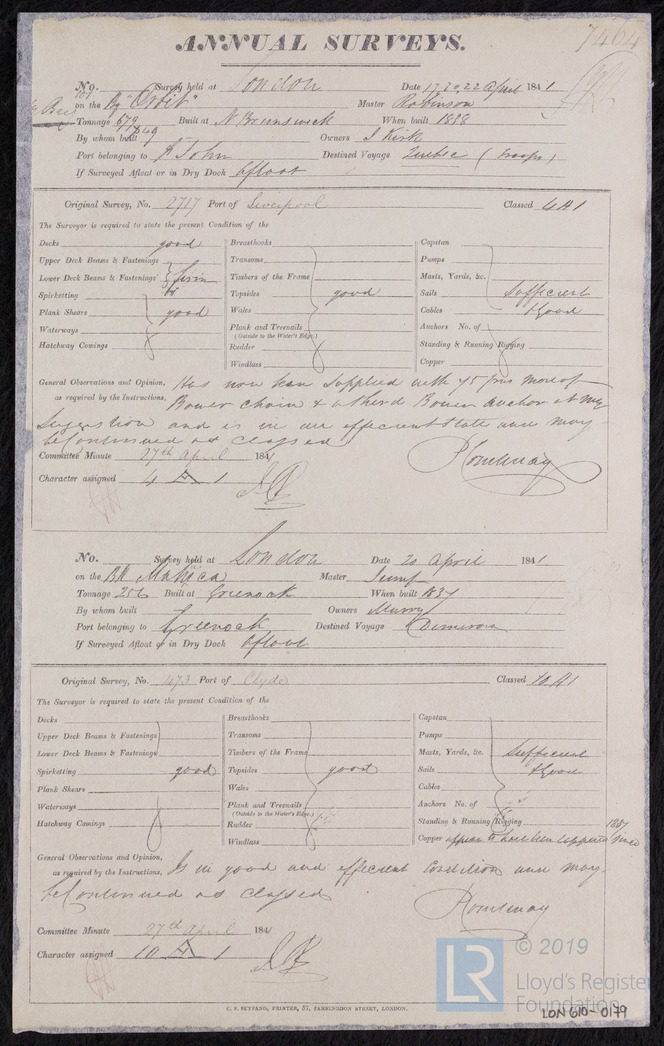 7464
ANNUAL SURVEYS.
No. Survey held at London Date 17, 20, 22 April 1841
on the Bg "Orbit" Master Robinson
Tonnage 679 Built at N. Brunswick When built 1838
649
By whom built Owners J Kirk
Port belonging to St John Destined Voyage Quebec (Troops)
If Surveyed Afloat or in Dry Dock Afloat
Original Survey, No. 2717 Port of Liverpool Classed 4 A 1
The Surveyor is required to state the present Condition of the
Decks good
Upper Deck Beams & Fastenings
Lower Deck Beams & Fastenings
Spirketting
Plank Shears good
Waterways
Hatchway Comings
Breasthooks
Transoms
Timbers of the Frame
Topsides good
Wales
Plank and Treenails
(Outside to the Water's Edge.)
Rudder
Windlass
Capstan
Pumps
Masts, Yards, &c.
Sails Sufficient
Cables & Good
Anchors No. of
Standing & Running Rigging
Copper
General Observations and Opinion, Has now been supplied with 45 fms more of
as required by the Instructions, Bower chain & a third Bower anchor at my
Suggestion and is in an efficient state and may
be Continued as classed
Committee Minute 27th April 1841
Character assigned 4 A 1
No. Survey held at London Date 20 April 1841
on the Bk Master
Tonnage 256 Built at Greenock When built 1837
By whom built Owners Murry
Port belonging to Greenock Destined Voyage Demerara
If Surveyed Afloat or in Dry Dock Afloat
Original Survey, No. 473 Port of Clyde Classed 10 A 1
The Surveyor is required to state the present Condition of the
Decks
Upper Deck Beams & Fastenings
Lower Deck Beams & Fastenings
Spirketting good
Plank Shears
Waterways
Hatchway Comings
Breasthooks
Transoms
Timbers of the Frame
Topsides good
Wales
Plank and Treenails
(Outside to the Water's Edge.)
Rudder
Windlass
Capstan
Pumps
Masts, Yards, &c. Sufficient
Sails & Good
Cables
Anchors No. of
Standing & Running Rigging 1837
Copper appear to have been coppered since
General Observations and Opinion, Is in good and efficient Condition and may
as required by the Instructions,
be Continued as classed
Committee Minute 27th April 1841
Character assigned 10 A 1
C. F. SEYFANG, PRINTER, 57, FARRINGDON STREET, LONDON.
LR © 2019
Lloyd's Register
Foundation
LON 610-0179